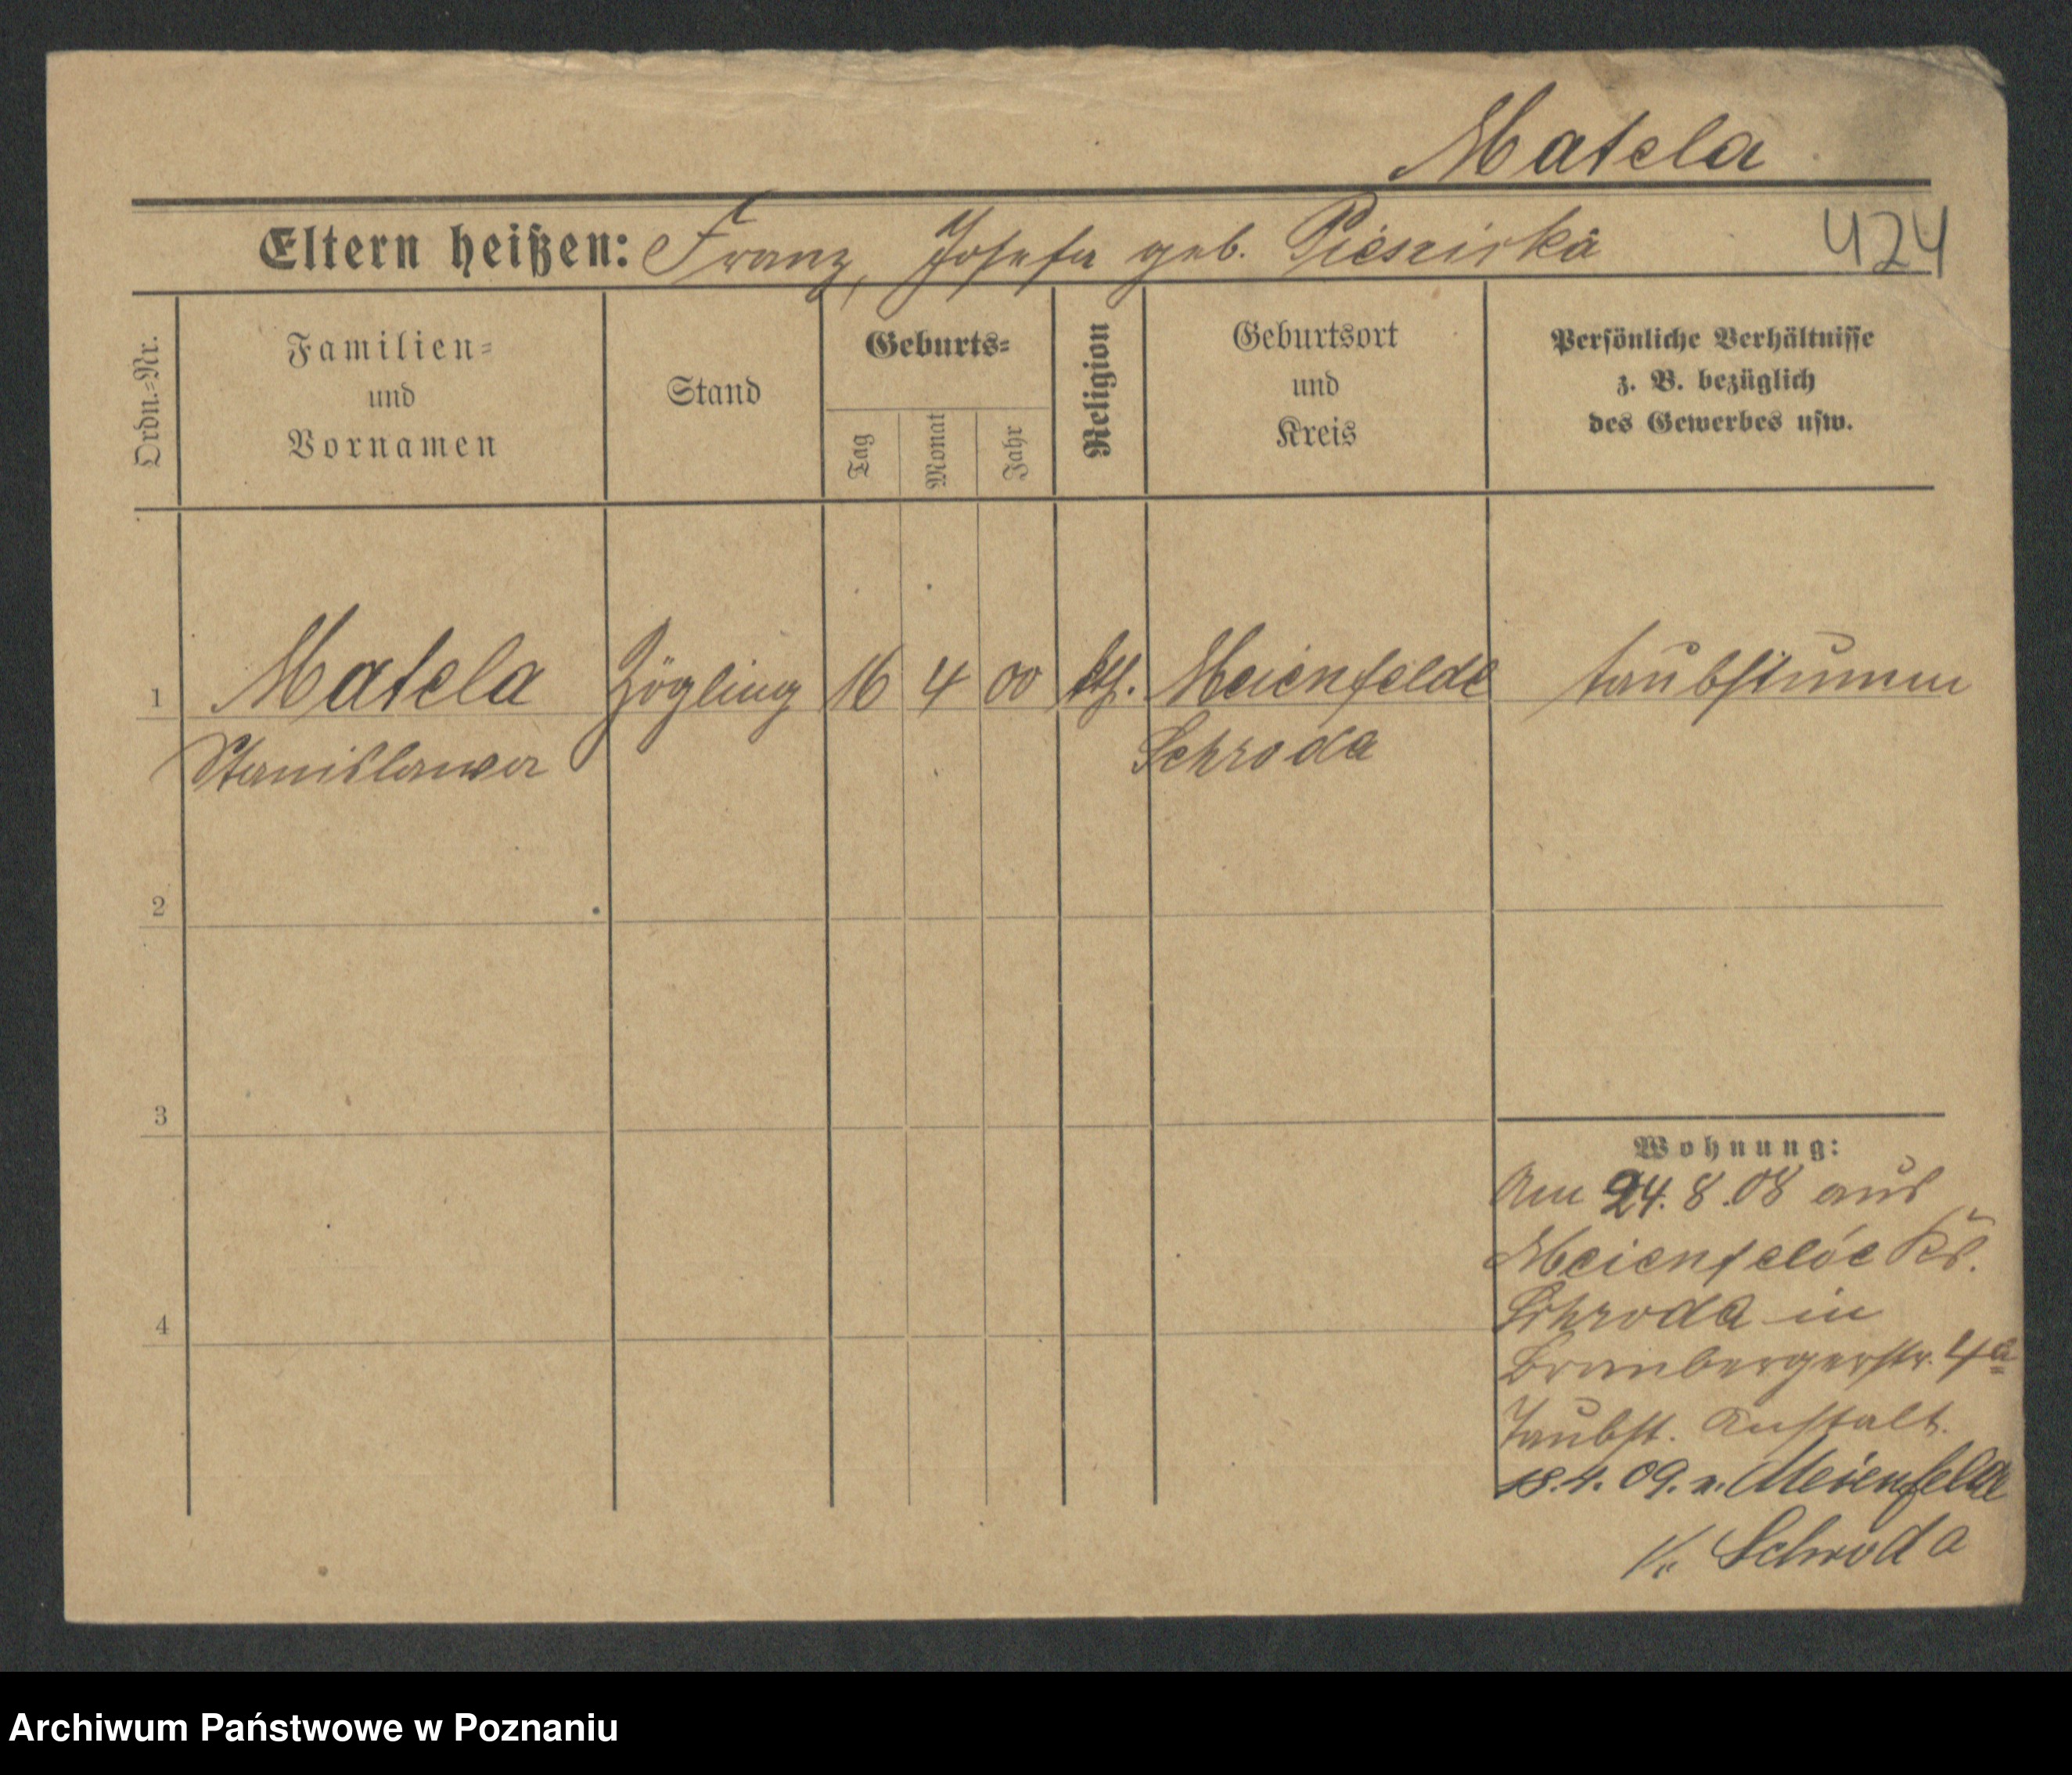 Matela
Eltern heißen: Franz, Josefa geb.
424
Ordn.=Nr.
Familien=
und
Vornamen
Stand
Geburts=
Tag
Monat
Jahr
Religion
Geburtsort
und
Kreis
Persönliche Verhältnisse
z. B. bezüglich
des Gewerbes usw.
1 Matela Zögling 16 4 00 kth. Meienfelde taubstumm
Stanislawa Schroda
2
3
4
Wohnung:
Am 24.8.08 aus
Meienfelde Kr.
Schroda in
Brombergerstr. 4a
Taubst. Anstalt.
18.4.09. n. Meienfelde
Kr. Schroda
Archiwum Państwowe w Poznaniu